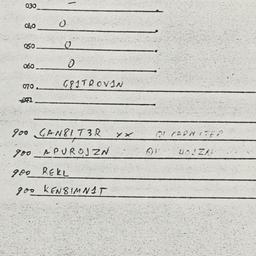 030 –
040 0
050 0
060 0
070 GP1TROV1N
900 GAN8IT3R xx
900 APUROJZN
900 REKL
900 KEN8IMN1T